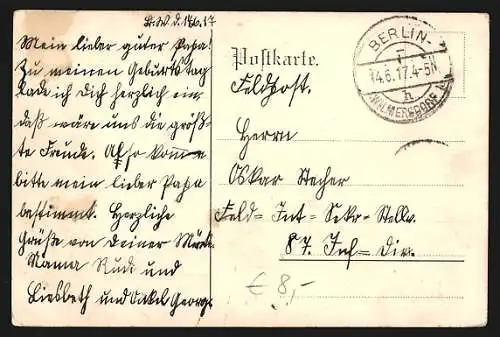 Mein lieber guter Papa!
Zu meinem Geburtstag
lade ich Dich herzlich ein,
daß wäre uns die größ-
te Freude. Also komme
bitte mein lieber Papa
bestimmt. Herzliche
Grüße von Deiner
Mama Rudi und
Liesbeth und Onkel Georg.
Postkarte.
Feldpost.
BERLIN-
14.6.17.4-5N
h
WILMERSDORF
Herrn
Oskar Stecher
Feld-Int-Sekr-Stellv.
87. Inf-Div.
€ 8,-